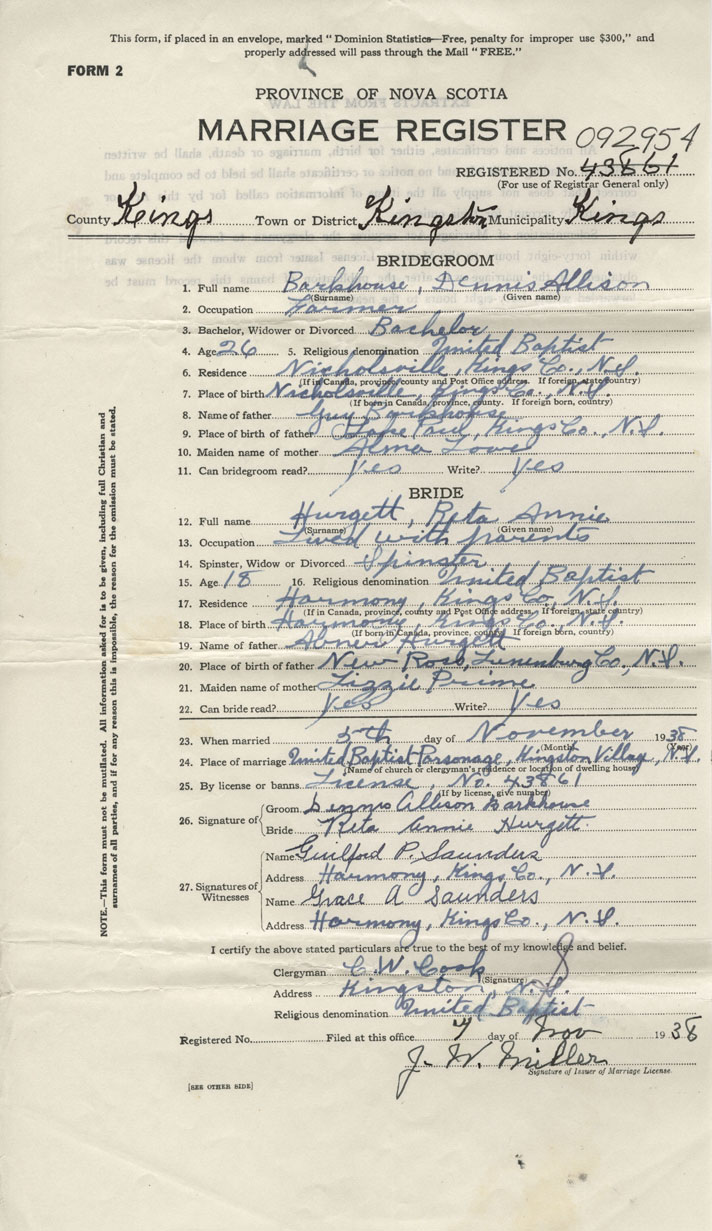 This form, if placed in an envelope, marked "Dominion Statistics—Free, penalty for improper use $300," and
properly addressed will pass through the Mail "FREE."
FORM 2
PROVINCE OF NOVA SCOTIA
MARRIAGE REGISTER 092954
REGISTERED No. 43861
(For use of Registrar General only)
County Kings Town or District Kingston Municipality Kings
BRIDEGROOM
1. Full name Barkhouse, Dennis Allison
(Surname) (Given name)
2. Occupation Farmer
3. Bachelor, Widower or Divorced Bachelor
4. Age 26 5. Religious denomination United Baptist
6. Residence Nicholsville, Kings Co., N.S.
(If in Canada, province, county and Post Office address. If foreign, state country)
7. Place of birth Nicholsville, Kings Co., N.S.
(If born in Canada, province, county. If foreign born, country)
8. Name of father Guy Barkhouse
9. Place of birth of father Kings Co., N.S.
10. Maiden name of mother Alma Lowe
11. Can bridegroom read? Yes Write? Yes
BRIDE
12. Full name Hurgett, Reta Annie
(Surname) (Given name)
13. Occupation Lived with parents
14. Spinster, Widow or Divorced Spinster
15. Age 18 16. Religious denomination United Baptist
17. Residence Harmony, Kings Co., N.S.
(If in Canada, province, county and Post Office address. If foreign, state country)
18. Place of birth Harmony, Kings Co., N.S.
(If born in Canada, province, county. If foreign born, country)
19. Name of father Abner Hurgett
20. Place of birth of father New Ross, Lunenburg Co., N.S.
21. Maiden name of mother Lizzie Prime
22. Can bride read? Yes Write? Yes
23. When married 5th day of November 1938
(Month) (Year)
24. Place of marriage United Baptist Parsonage, Kingston Village, N.S.
(Name of church or clergyman's residence or location of dwelling house)
25. By license or banns License, No. 43861
(If by license, give number)
26. Signature of
Groom Dennis Allison Barkhouse
Bride Reta Annie Hurgett
27. Signatures of Witnesses
Name Guilford P. Saunders
Address Harmony, Kings Co., N.S.
Name Grace A Saunders
Address Harmony, Kings Co., N.S.
I certify the above stated particulars are true to the best of my knowledge and belief.
Clergyman C. W. Cook
(Signature)
Address Kingston, N.S.
Religious denomination United Baptist
Registered No. Filed at this office 7 day of Nov 1938
J. W. Miller
Signature of Issuer of Marriage License.
[SEE OTHER SIDE]
NOTE.—This form must not be mutilated. All information asked for is to be given, including full Christian and
surnames of all parties, and if for any reason this is impossible, the reason for the omission must be stated.